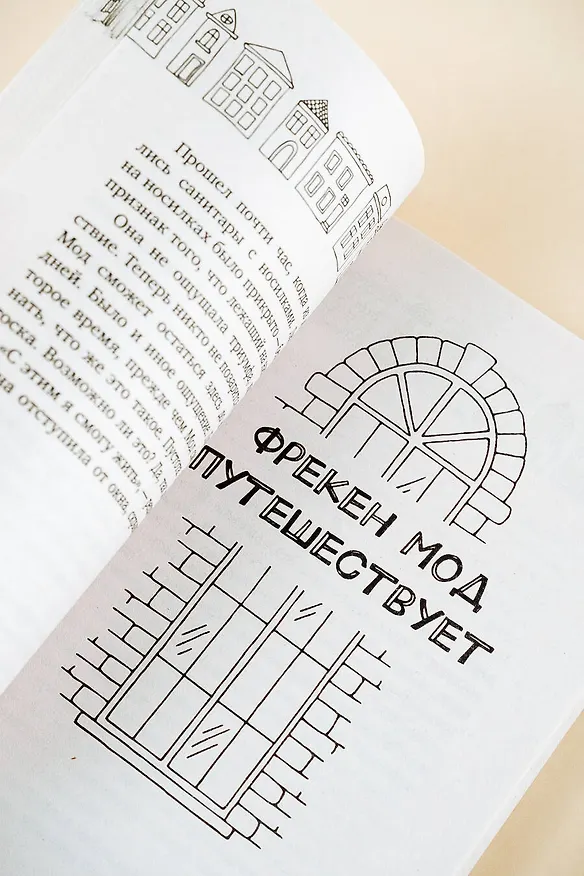 Прошел почти час, когда
лись санитары с носилками
на носилках было прикрыто
признак того, что лежащий
Она не ощущала
ствие. Теперь никто не
Мод сможет остаться здесь
дней. Было и иное ощущение
торое время, прежде чем Мод
нать, что же это такое.
тоска. Возможно ли это? Да
«С этим я смогу жить», –
на отступила от окна,
ФРЕКЕН МОД
ПУТЕШЕСТВУЕТ